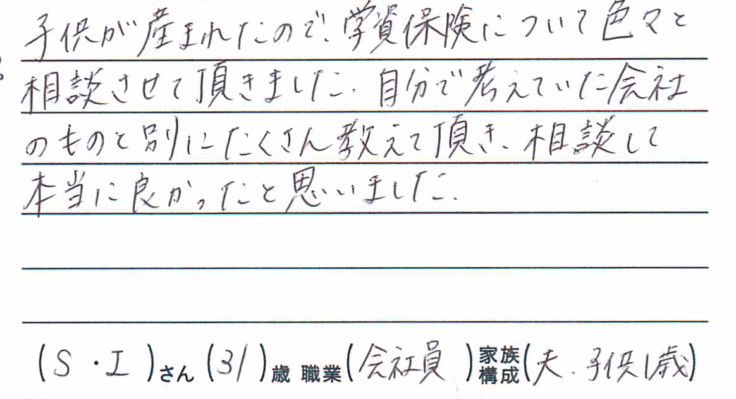 子供が産まれたので、学資保険について色々と
相談させて頂きました。自分で考えていた会社
のものと別にたくさん教えて頂き、相談して
本当に良かったと思いました。
(S・I)さん(31)歳 職業(会社員)家族構成(夫、子供1歳)